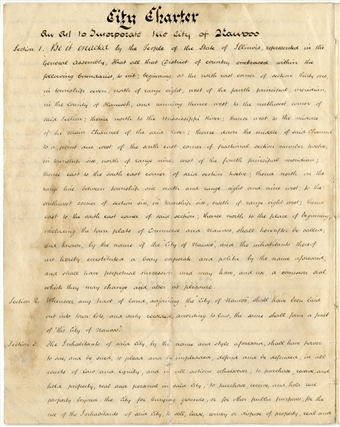 City Charter
An Act to Incorporate the City of Nauvoo
Section 1. Be it enacted by the People of the State of Illinois, represented in the
General Assembly, that all that District of country embraced within the
following boundaries, to wit; beginning at the north east corner of section thirty one,
in township seven, north of range eight, west of the fourth principal meridian,
in the County of Hancock, and running thence west to the northwest corner of
said Section; thence north to the Mississippi River; thence west to the middle
of the main Channel of the said river; thence down the middle of said Channel
to a point due west of the south east corner of fractional section number twelve,
in township six, north of range nine, west of the fourth principal meridian;
thence east to the south east corner of said section twelve; thence north on the
range line between township six north and range eight and nine west, to the
southwest corner of section six, in township six, north of range eight west; thence
east to the south east corner of said section; thence north to the place of beginning;
including the town plats of Commerce and Nauvoo, shall hereafter be called,
and known, by the name of the "City of Nauvoo", and the inhabitants thereof
are hereby constituted a body corporate and politic by the name aforesaid,
and shall have perpetual succession, and may have, and use, a common seal,
which they may change and alter at pleasure.
Section 2. Whenever any tract of land, adjoining the "City of Nauvoo", shall have been laid
out into town lots, and duly recorded, according to law, the same shall form a part
of the "City of Nauvoo".
Section 3. The Inhabitants of said City, by the name and style aforesaid, shall have power
to sue, and be sued, to plead and be impleaded, defend and be defended, in all
courts of law and equity, and in all actions whatsoever; to purchase, receive, and
hold property, real and personal in said City, to purchase, receive, and hold real
property beyond the City for burying grounds, or for other public purposes, for the
use of the Inhabitants of said City, to sell, lease, convey or dispose of property, real and